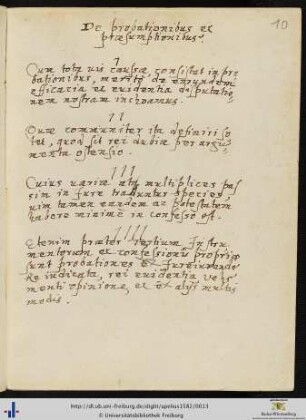 10
De probationibus et
præsumptionibus.
I
Cum tota vis causæ consistat in pro
bationibus, merito de earundem
efficacia et evidentia disputatio
nem nostram inchoamus.
II
Quæ communiter ita definiri so
let, quod sit rei dubiæ per argu
menta ostensio.
III
Cuius variæ atq multiplices pas
sim in iure traduntur species,
vim tamen eandem ac potestatem
habere minimè in confesso est.
IIII
Etenim præter testium, Instru
mentorum et confessionis propriæ
sunt probationes ex iureiurando
Re iudicata, rei evidentia, ve
menti opinione, et ex alijs multis
modis.
http://dl.ub.uni-freiburg.de/diglit/apelius1582/0013
© Universitätsbibliothek Freiburg